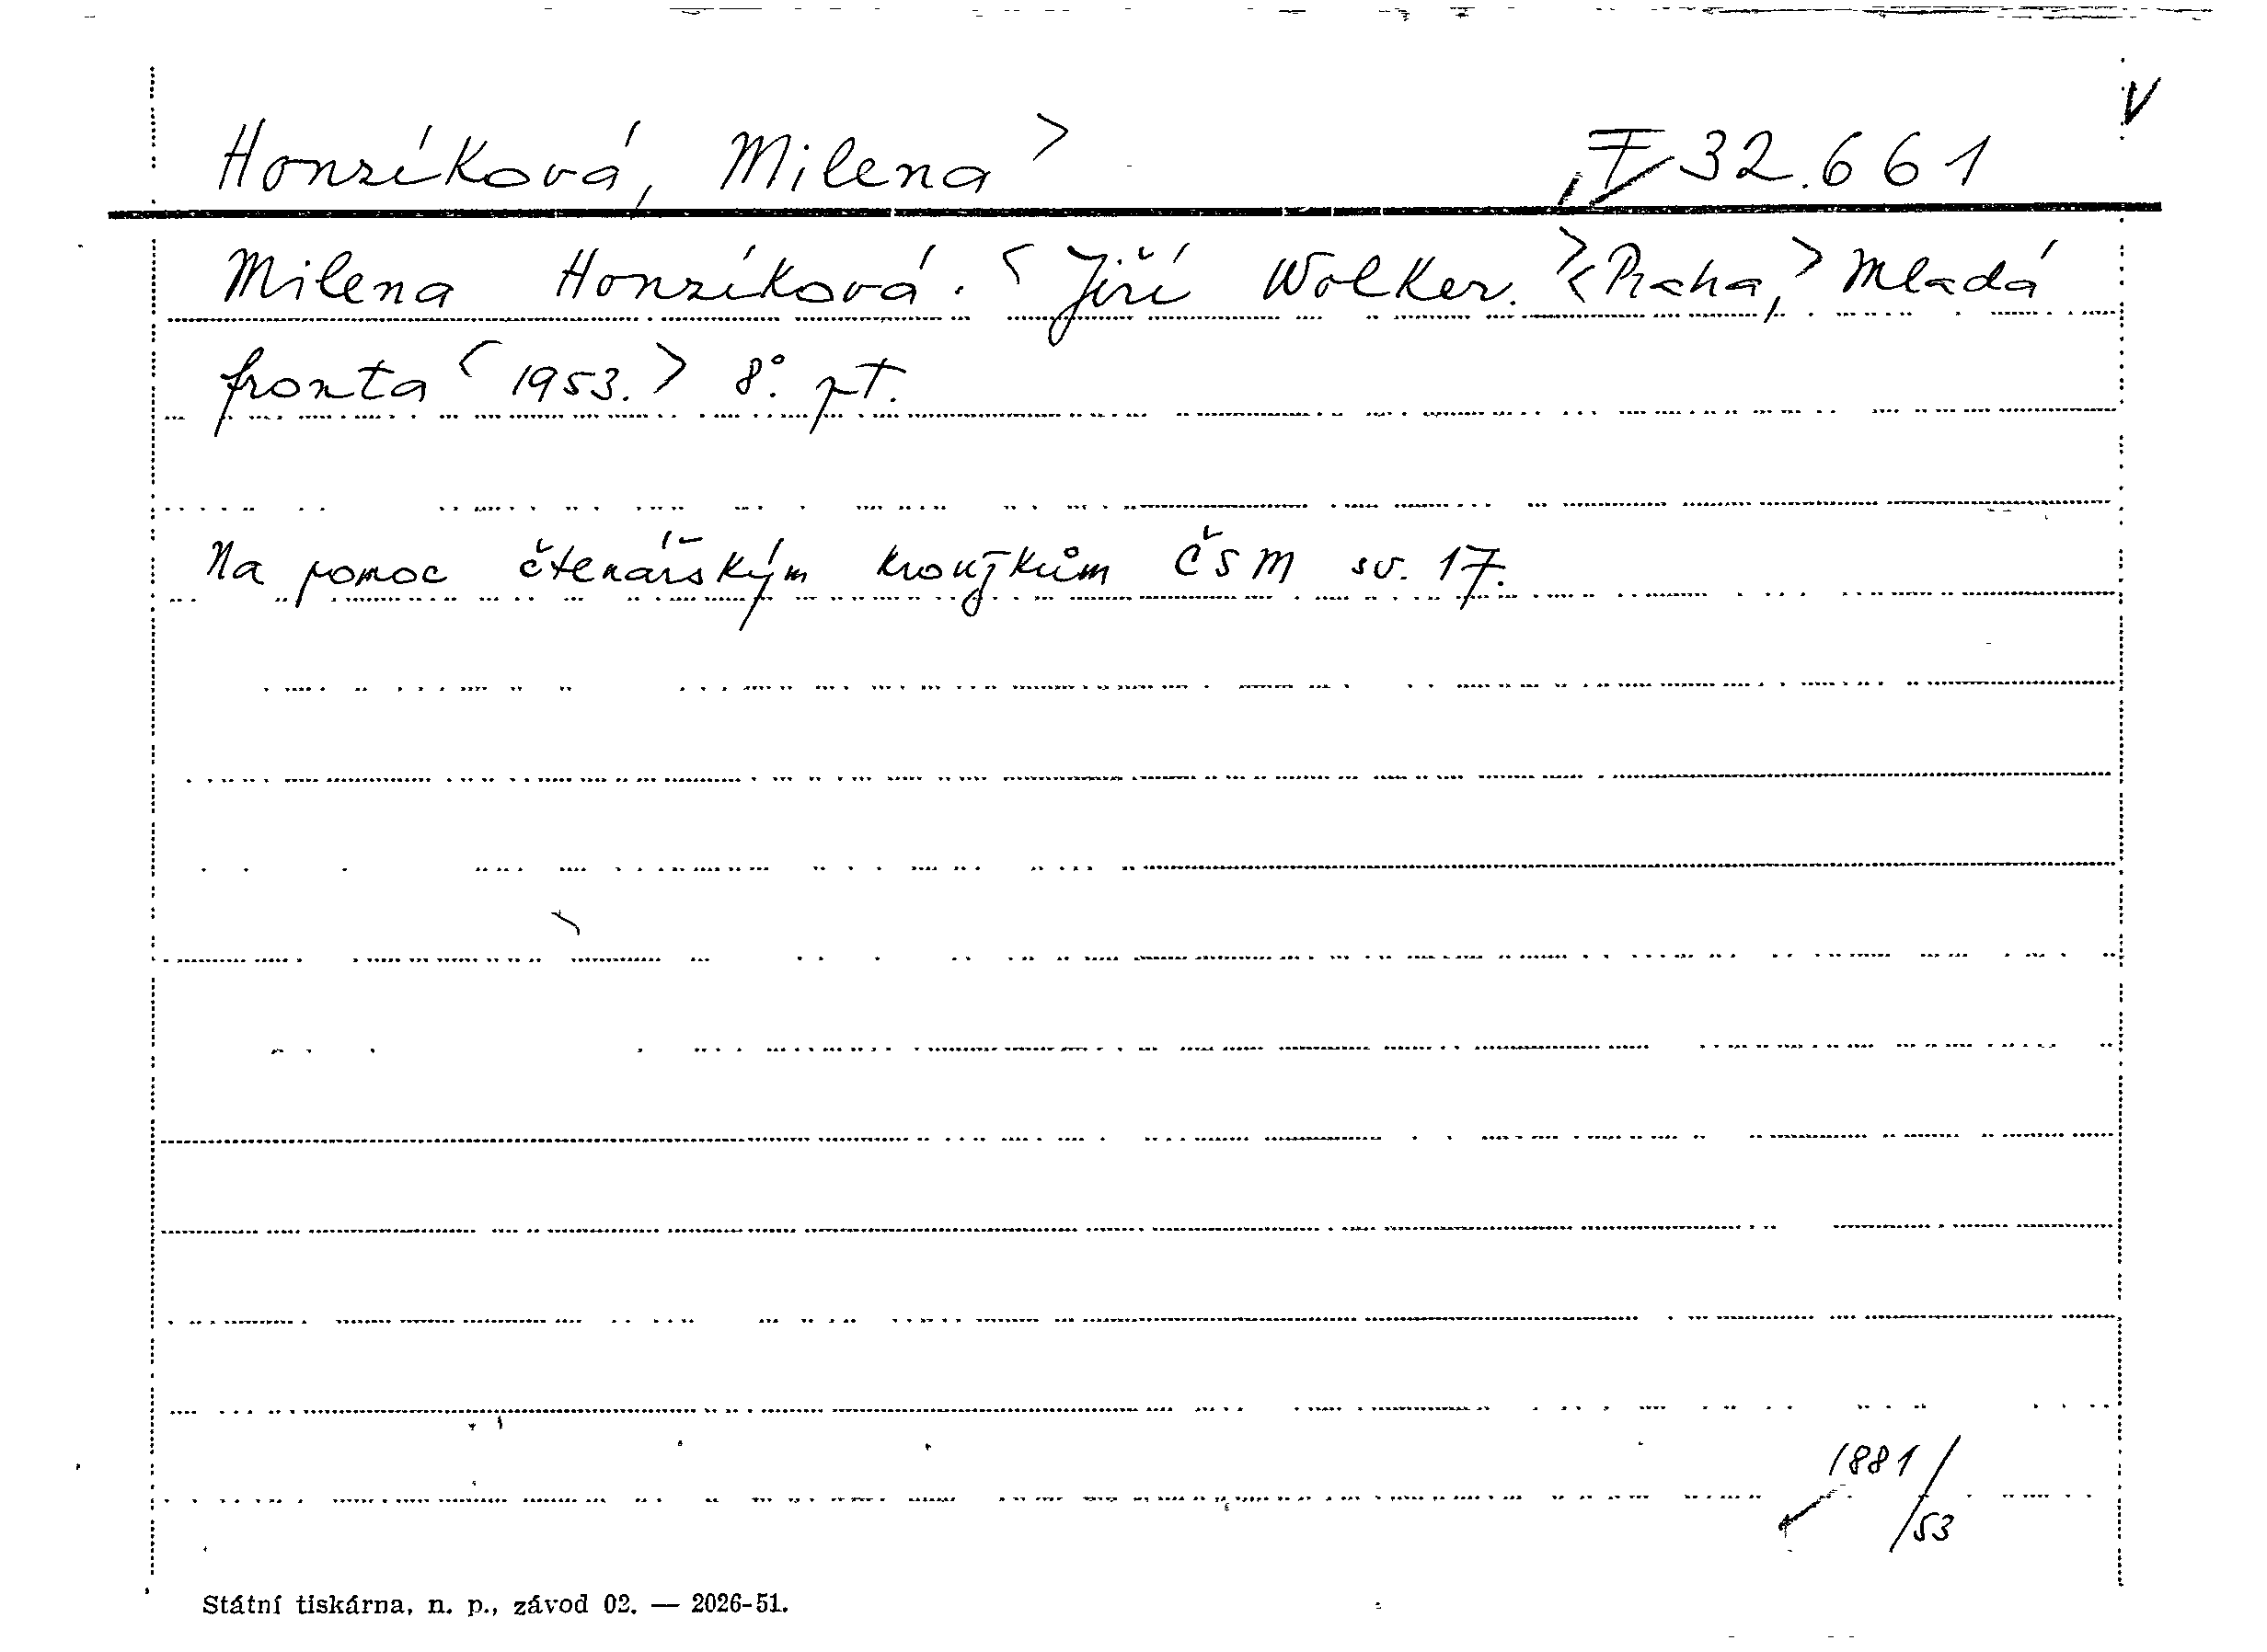 Honzíková, Milena > F 32.661 V
Milena Honzíková. < Jiří Wolker. > < Praha, > Mladá
fronta < 1953. > 8°. pt.
Na pomoc čtenářským kroužkům ČSM sv. 17.
1881/
/53
Státní tiskárna, n. p., závod 02. — 2026-51.